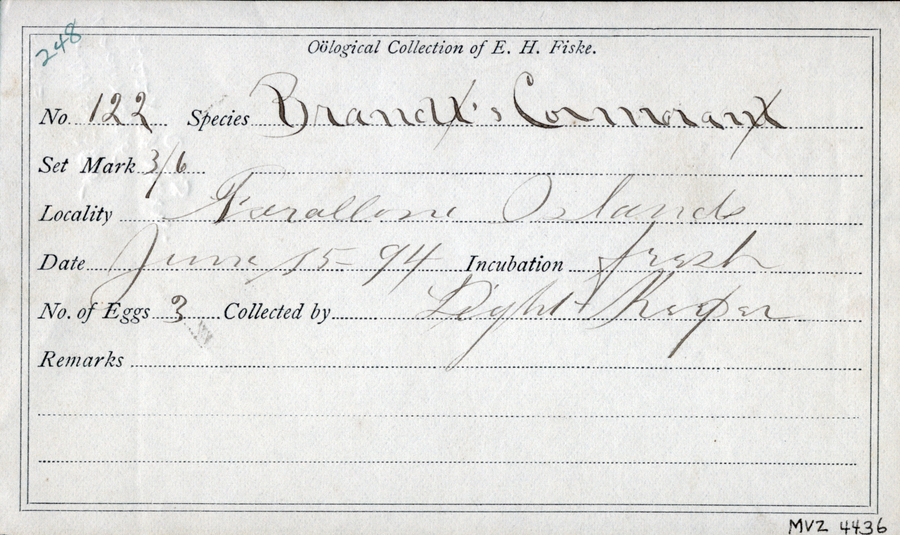 248
Oölogical Collection of E. H. Fiske.
No. 122 Species Brandt's Cormorant
Set Mark 3/6
Locality Farallone Islands
Date June 15-94 Incubation fresh
No. of Eggs 3 Collected by Light Keeper
Remarks
MVZ 4436